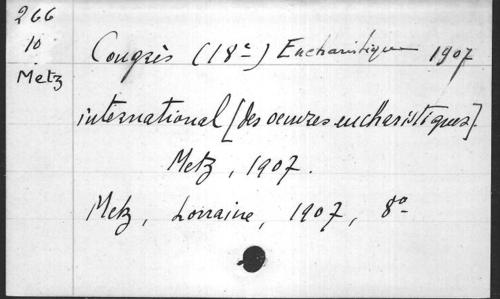 266
10
Metz
Congrès (18e) Eucharistique 1907
international [des oeuvres eucharistiques].
Metz, 1907.
Metz, Lorraine, 1907, 8o